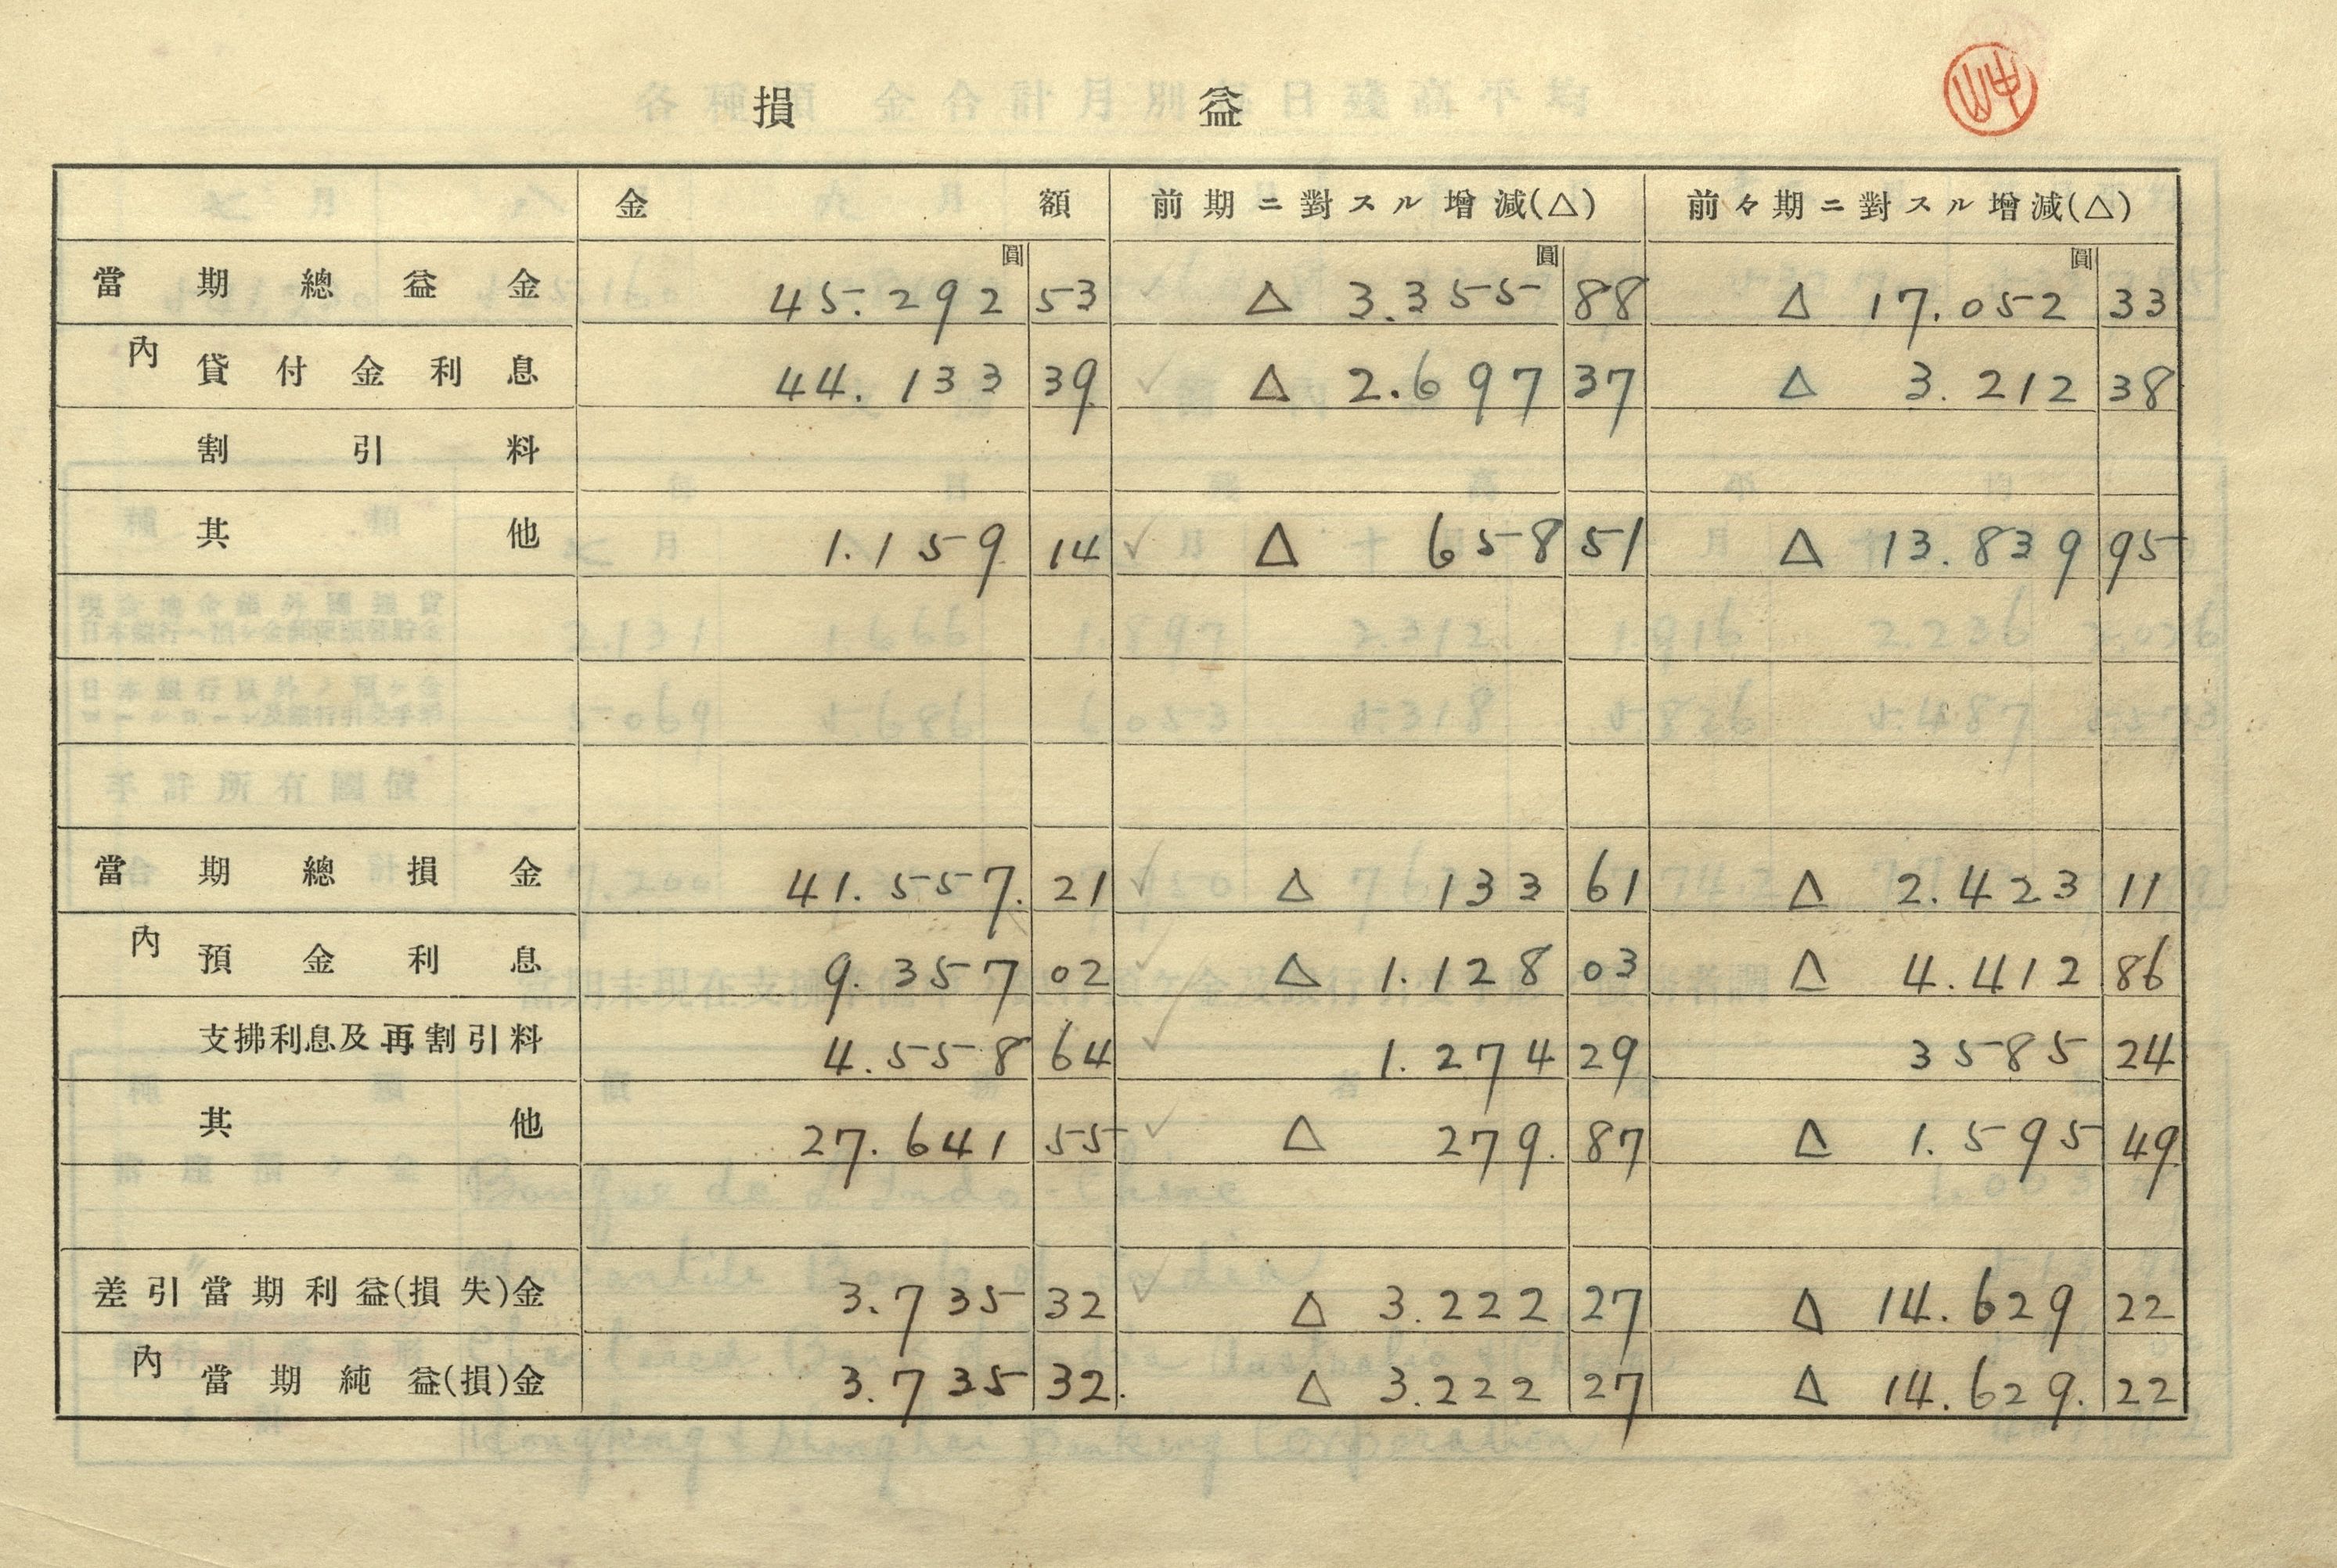 損 益
金 額 前期ニ對スル增減(△) 前々期ニ對スル增減(△)
圓 圓 圓
當期總益金 45.292 53 △ 3.355 88 △ 17.052 33
內 貸付金利息 44.133 39 △ 2.697 37 △ 3.212 38
割引料
其他 1.159 14 △ 658 51 △ 13.839 95
當期總損金 41.557. 21 △ 133 61 △ 2.423 11
內 預金利息 9.357 02 △ 1.128 03 △ 4.412 86
支拂利息及再割引料 4.558 64 1.274 29 3585 24
其他 27.641 55 △ 279. 87 △ 1.595 49
差引當期利益(損失)金 3.735 32 △ 3.222 27 △ 14.629 22
內 當期純益(損)金 3.735 32. △ 3.222 27 △ 14.629. 22